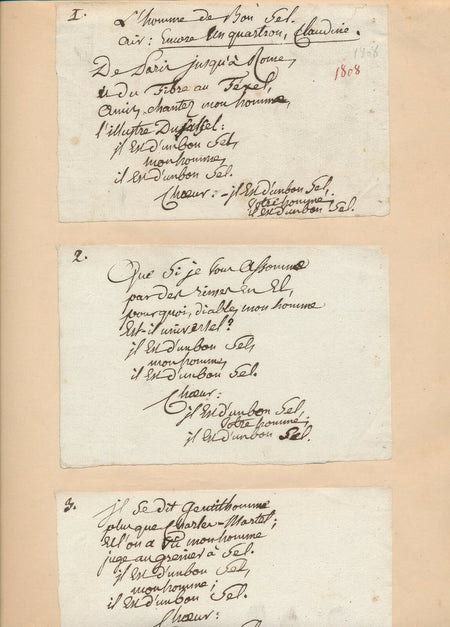 1.
L'homme de Bon Sel.
air: Encore un quartron, Claudine.
1808
1808
De Paris jusqu'à Rome,
et du Tibre au Texel,
amis, chantez mon homme,
l'illustre Dussel:
il Est d'un bon Sel,
mon homme,
il Est d'un bon Sel.
Chœur: - il Est d'un bon Sel,
votre homme,
il est d'un bon Sel.
2.
Que si je vous assomme
par des rimes en El,
pourquoi, diable, mon homme
Est-il universel?
il Est d'un bon Sel,
mon homme,
il Est d'un bon Sel.
Chœur:
il Est d'un bon Sel,
votre homme;
il Est d'un bon Sel.
3.
il se dit Gentilhomme
plus que Charles-Martel;
Et l'on a vu mon homme
juge au grenier à Sel.
il Est d'un bon Sel,
mon homme;
il Est d'un bon Sel.
Chœur: